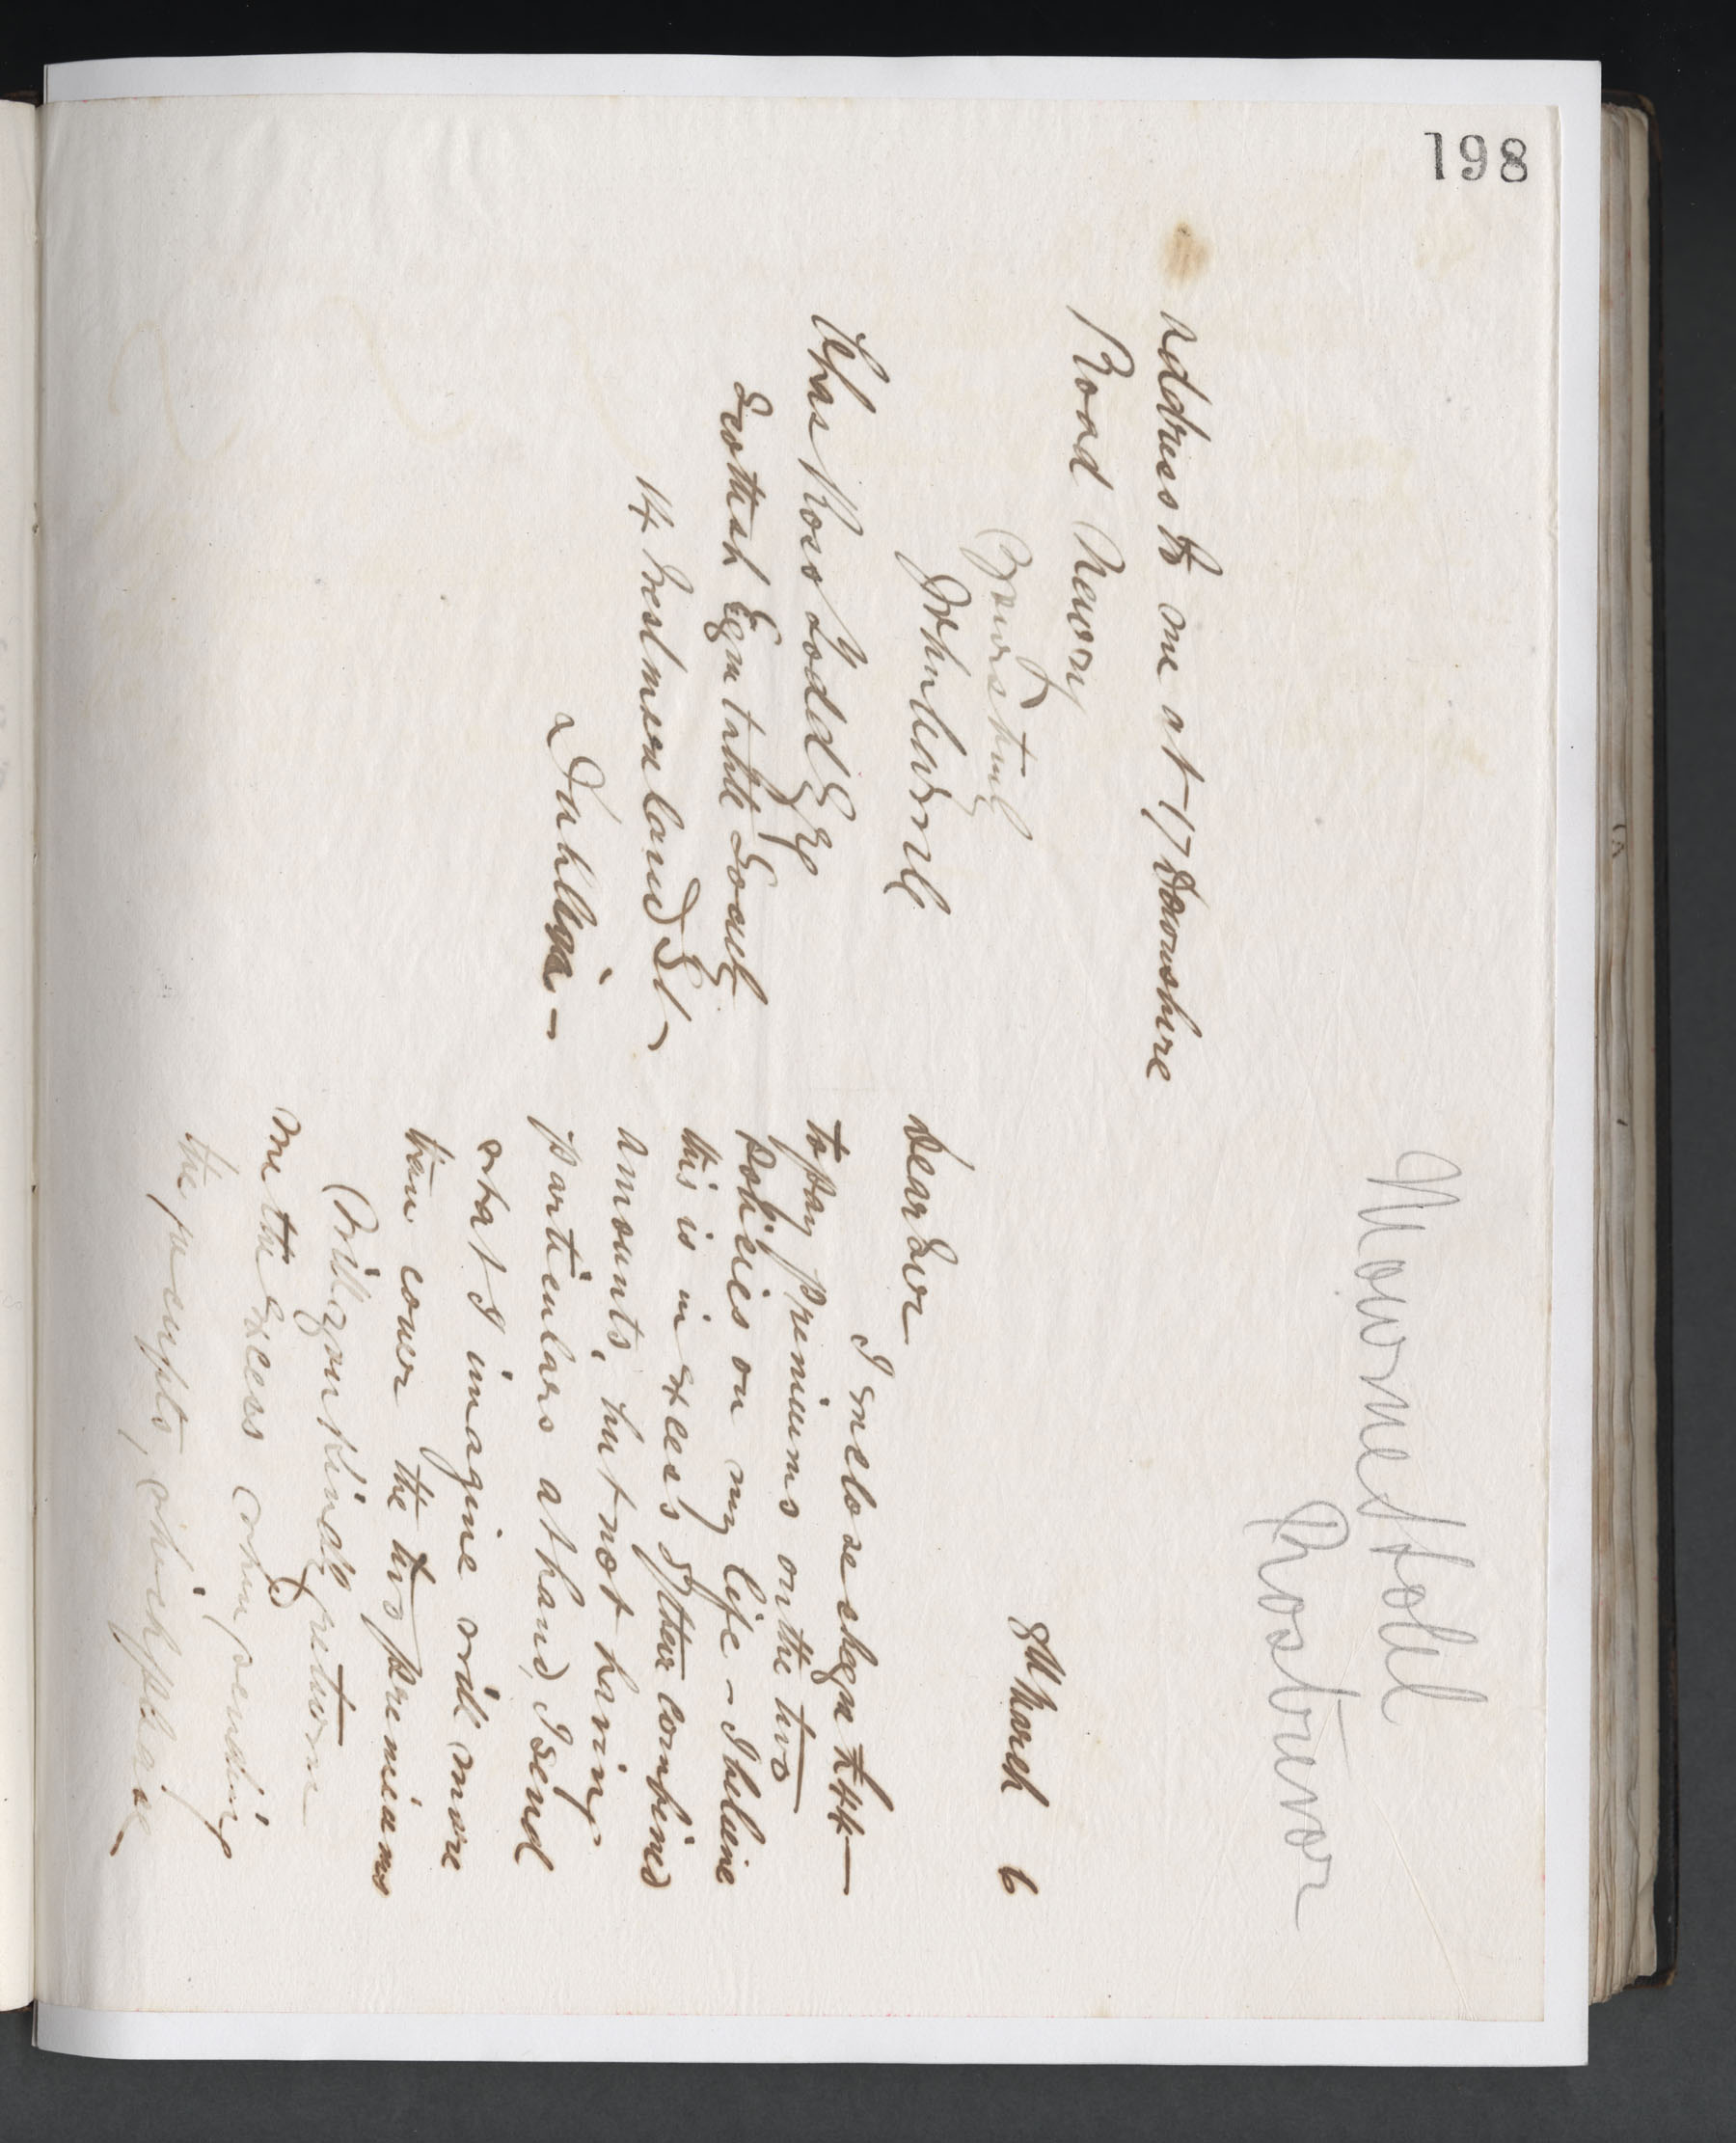 198
Mourne Hotel
Rostrevor
8th March 6
Dear Sir
I enclose cheque £44—
to pay premiums on the two
policies on my life – I believe
this is in excess of their combined
amounts, but not having
particulars at hand, I send
what I imagine will more
than cover the two premiums
Will you kindly return
me the excess when sending
the receipts, which please
address to me at 17 Downshire
Road Newry
Yours truly
Chas Ross Todd Esq
Scottish Equitable Society
14 Westmoreland St –
Dublin –